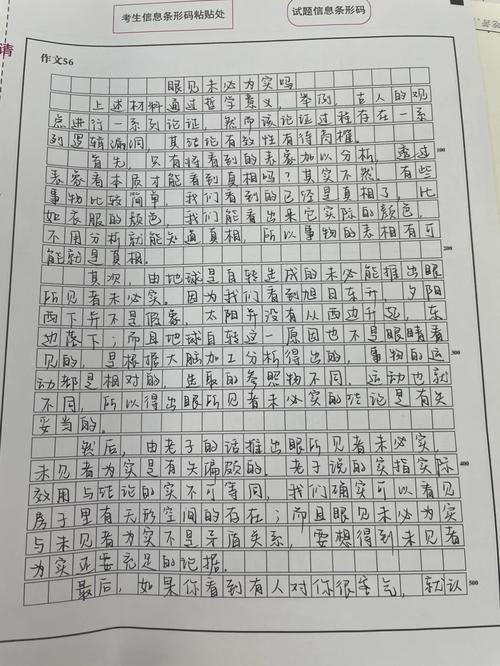 考生信息条形码粘贴处
试题信息条形码
请
作文56
眼见未必为实吗
上述材料通过哲学意义，举例，古人的观
点进行一系列论证，然而该论证过程存在一系
列逻辑漏洞，其结论有效性有待商榷。
首先，只有将看到的表象加以分析，透过
100
表象看本质才能看到真相吗？其实不然。有些
事物比较简单，我们看到的已经是真相了，比
如衣服的颜色，我们能看出来它实际的颜色，
不用分析就能知道真相，所以事物的表相有可
200
能就是真相。
其次，由地球是自转造成的未必能推出眼
所见者未必实。因为我们看到旭日东升，夕阳
西下并不是假象，太阳并没有从西边升起，东
边落下；而且地球自转这一原因也不是眼睛看
见的，是根据大脑加工分析得出的，事物的运
300
动都是相对的，出取的参照物不同，运动也就
不同，所以得出眼所见者未必实的结论是有失
妥当的。
然后，由老子的话推出眼所见者未必实，
未见者为实是有失偏颇的。老子说的实指实际
400
效用与结论的实不可等同，我们确实可以看见
房子里有无形空间的存在；而且眼见未必为实
与未见者为实不是矛盾关系，要想得到未见者
为实还要充足的论据。
最后，如果你看到有人对你很客气，就认
500